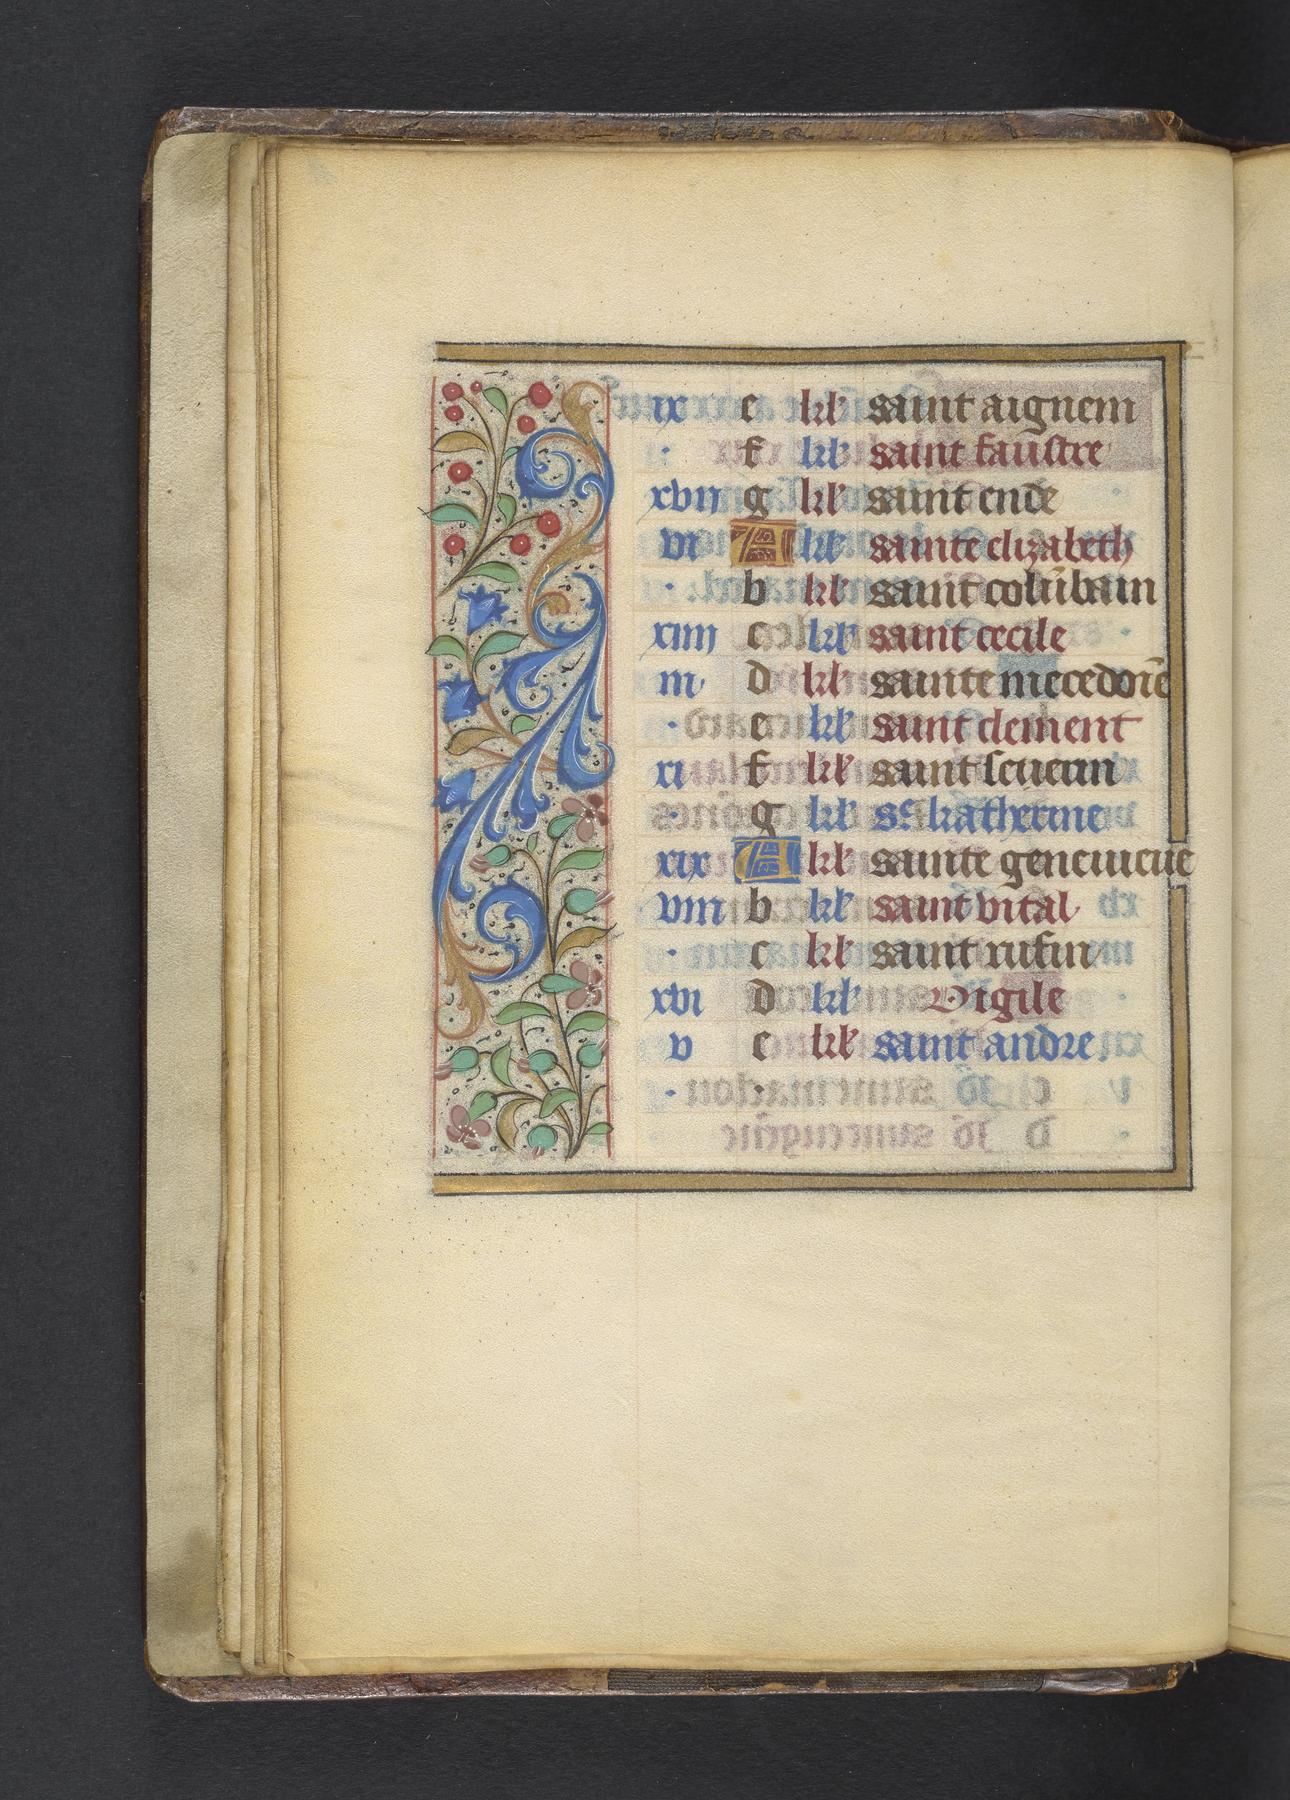 ix e kl' saint aignem
· f kl' saint faustre
xvii g kl' saint ende
vi A kl' sainte elizabeth
· b kl' saint colūbain
xiiii c kl' saint cecile
iii d kl' sainte mecedoīe
· e kl' saint clement
xi f kl' saint seuerin
· g kl' sᵉ katherine
xix A kl' sainte geneuieue
viii b kl' saint vital
· c kl' saint rufin
xvi d kl' Vigile
v e kl' saint andre